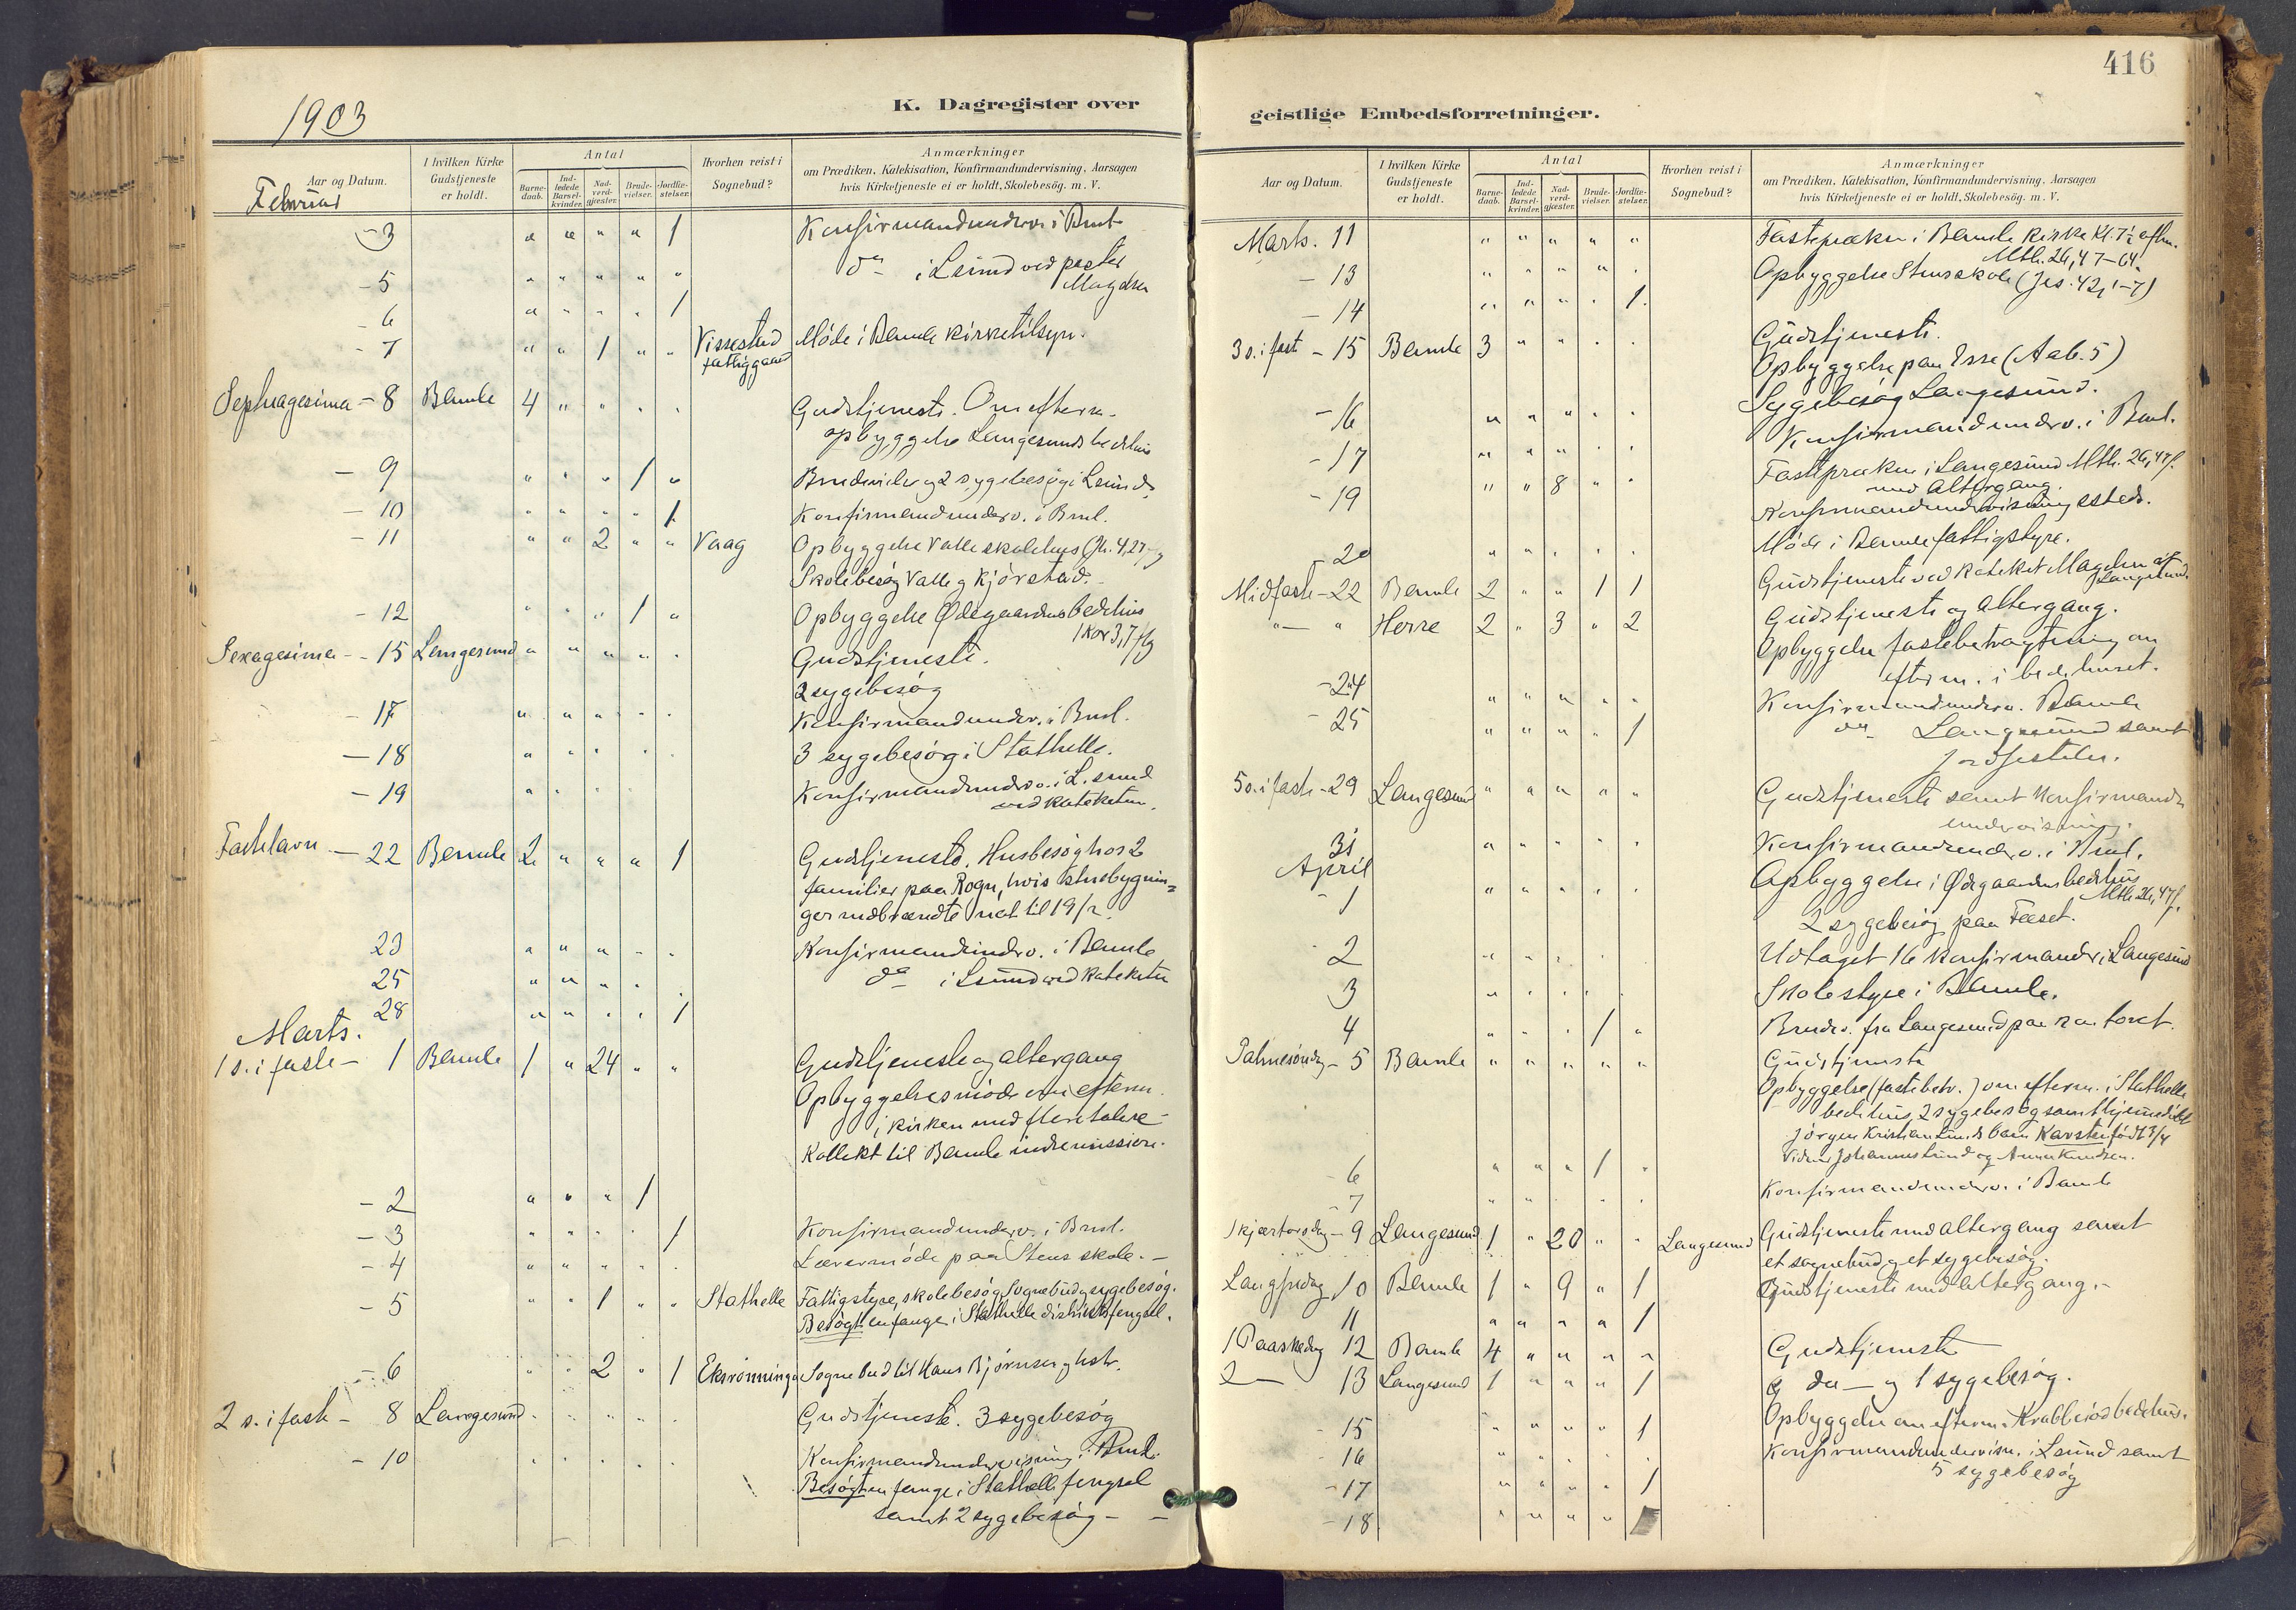 1903
K. Dagregister over
Aar og Datum.
I hvilken Kirke Gudstjeneste er holdt.
Antal
Barnedaab.
Indledede Barselkvinder.
Nadverdgjæster.
Brudevielser.
Jordfæstelser.
Hvorhen reist i Sognebud?
Anmærkninger
om Prædiken, Katekisation, Konfirmandundervisning, Aarsagen
hvis Kirketjeneste ei er holdt, Skolebesög. m. V.
Februar
3 " " " " 1 Konfirmandunderv. i Bml.
- 5 " " " " " do i Lsund ved pastor
Magelsen
- 6 " " " " 1
- 7 " " 1 " " Vissestad fattiggaard Møde i Bamle kirketilsyn.
Septuagesima - 8 Bamle 4 " " " " Gudstjeneste. Om efterm.
opbyggelse Langesunds bedehus
- 9 " " " 1 " Brudevielse og 2 sygebesøg i Lsund.
- 10 " " " " 1 Konfirmandunderv. i Bml.
- 11 " " 2 " " Vaag Opbyggelse Valle skolehus (Jh. 4,27 flg
Skolebesøg Valle og Kjørstad.
- 12 " " " 1 " Opbyggelse Ødegaardens bedehus
1 Kor 3,7 flg
Sexagesima - 15 Langesund " " " " " Gudstjeneste.
2 sygebesøg
- 17 " " " " " Konfirmandunderv. i Bml.
- 18 " " " " 3 sygebesøg i Stathelle.
- 19 " " " " Konfirmandunderv. i L.sund
ved kateketen.
Fastelavn - 22 Bamle 2 " " " 1 Gudstjeneste. Husbesøg hos 2
familier paa Rogn, hvis stuebygnin=
ger nedbrændte nat til 19/2.
23 " " " " " Konfirmandunderv. i Bamle
25 " " " " " do i Lsund ved kateketen
28 " " " " 1
Marts.
1 s. i faste - 1 Bamle 1 " 24 " " Gudstjeneste og altergang
Opbyggelsesmøde om efterm.
i kirken med flere talere -
Kollekt til Bamle indremission.
- 2 " " " 1
- 3 " " " " 1 Konfirmandunderv. i Bml.
- 4 " " " " " Lærermøde paa Stens skole. -
- 5 " " 1 " " Stathelle Fattigstyre, skolebesøg, sognebud og sygebesøg.
Besøgt en fange i Stathelle distriktsfengsel.
- 6 " " 2 " 1 Sognebud til Hans Bjørnsen og hstr.
2 s. i faste - 8 Langesund " " " " " Gudstjeneste. 3 sygebesøg
- 10 " " " " " Konfirmandundervisning i Bml.
Besøgt en fange i Stathelle fengsel
samt 2 sygebesøg -
416
geistlige Embedsforretninger.
Aar og Datum.
I hvilken Kirke Gudstjeneste er holdt.
Antal
Barnedaab.
Indledede Barselkvinder.
Nadverdgjæster.
Brudevielser.
Jordfæstelser.
Hvorhen reist i Sognebud?
Anmærkninger
om Prædiken, Katekisation, Konfirmandundervisning, Aarsagen
hvis Kirketjeneste ei er holdt, Skolebesög. m. V.
Marts. 11 " " " " " Fastepræken i Bamle kirke Kl. 7½ efm.
Mth. 26,47-64.
- 13 " " " " " Opbyggelse Stens skole (Jes. 42,1-7)
- 14 " " " " 1
3 s. i fast - 15 Bamle 3 " " " " Gudstjeneste.
Opbyggelse paa (Aab. 5)
- 16 " " " " " Sygebesøg Langesund.
- 17 " " " " " Konfirmandunderv. i Bml.
- 19 " " 8 " " Fastepræken i Langesund Mth. 26,47 f.
med altergang.
Konfirmandundervisning
- 20 " " " " " Møde i Bamle fattigstyre.
Midfaste - 22 Bamle 2 " " 1 1 Gudstjeneste ved kateket Magelsen af
Langesund.
" - " Herre 2 " 3 " 2 Gudstjeneste og altergang.
Opbyggelse fastebetragtning om
efterm. i bedehuset.
- 24 " " " " " Konfirmandunderv. Bamle
- 25 " " " " 1 do Langesund samt
jordfestelse.
5 s. i faste - 29 Langesund " " " " " Gudstjeneste samt konfirmand=
undervisning.
31 " " " " " Konfirmandunderv. i Bml.
April
- 1 " " " " " Opbyggelse i Ødegaardens bedehus
Mth 26,47 f.
2 sygebesøg paa Feset.
2 " " " " Udtaget 16 konfirmander i Langesund
3 " " " " Skolestyre i Bamle.
4 " " " 1 " Brudev. fra Langesund paa kontoret.
Palmesøndag - 5 Bamle " " " " " Gudstjeneste
Opbyggelse (fastebetr.) om efterm. i Stathelle
bedehus, 2 sygebesøg samt hjemmedøbt
Jørgen Kristian Lunds barn Karsten født 3/4
Johannes Lund og Anna Knudsen.
- 6 " " " 1 "
- 7 " " " " " Konfirmandunderv. i Bamle
Skjærtorsdag - 9 Langesund 1 " 20 " " Langesund Gudstjeneste med altergang samt
et sognebud og et sygebesøg.
Langfredag 10 Bamle 1 " 9 " 1 Gudstjeneste med altergang. -
11 " " " " 1
1 Paaskedag 12 Bamle 4 " " " " Gudstjeneste
2 - 13 Langesund 1 " " " 1 do - og 1 sygebesøg.
- 15 " " " " 1 Opbyggelse om efterm. Krabberød bedehus.
- 16 " " " " " Konfirmandundervisn. i Lsund samt
5 sygebesøg
- 17 " " " " 1
- 18 " " " "